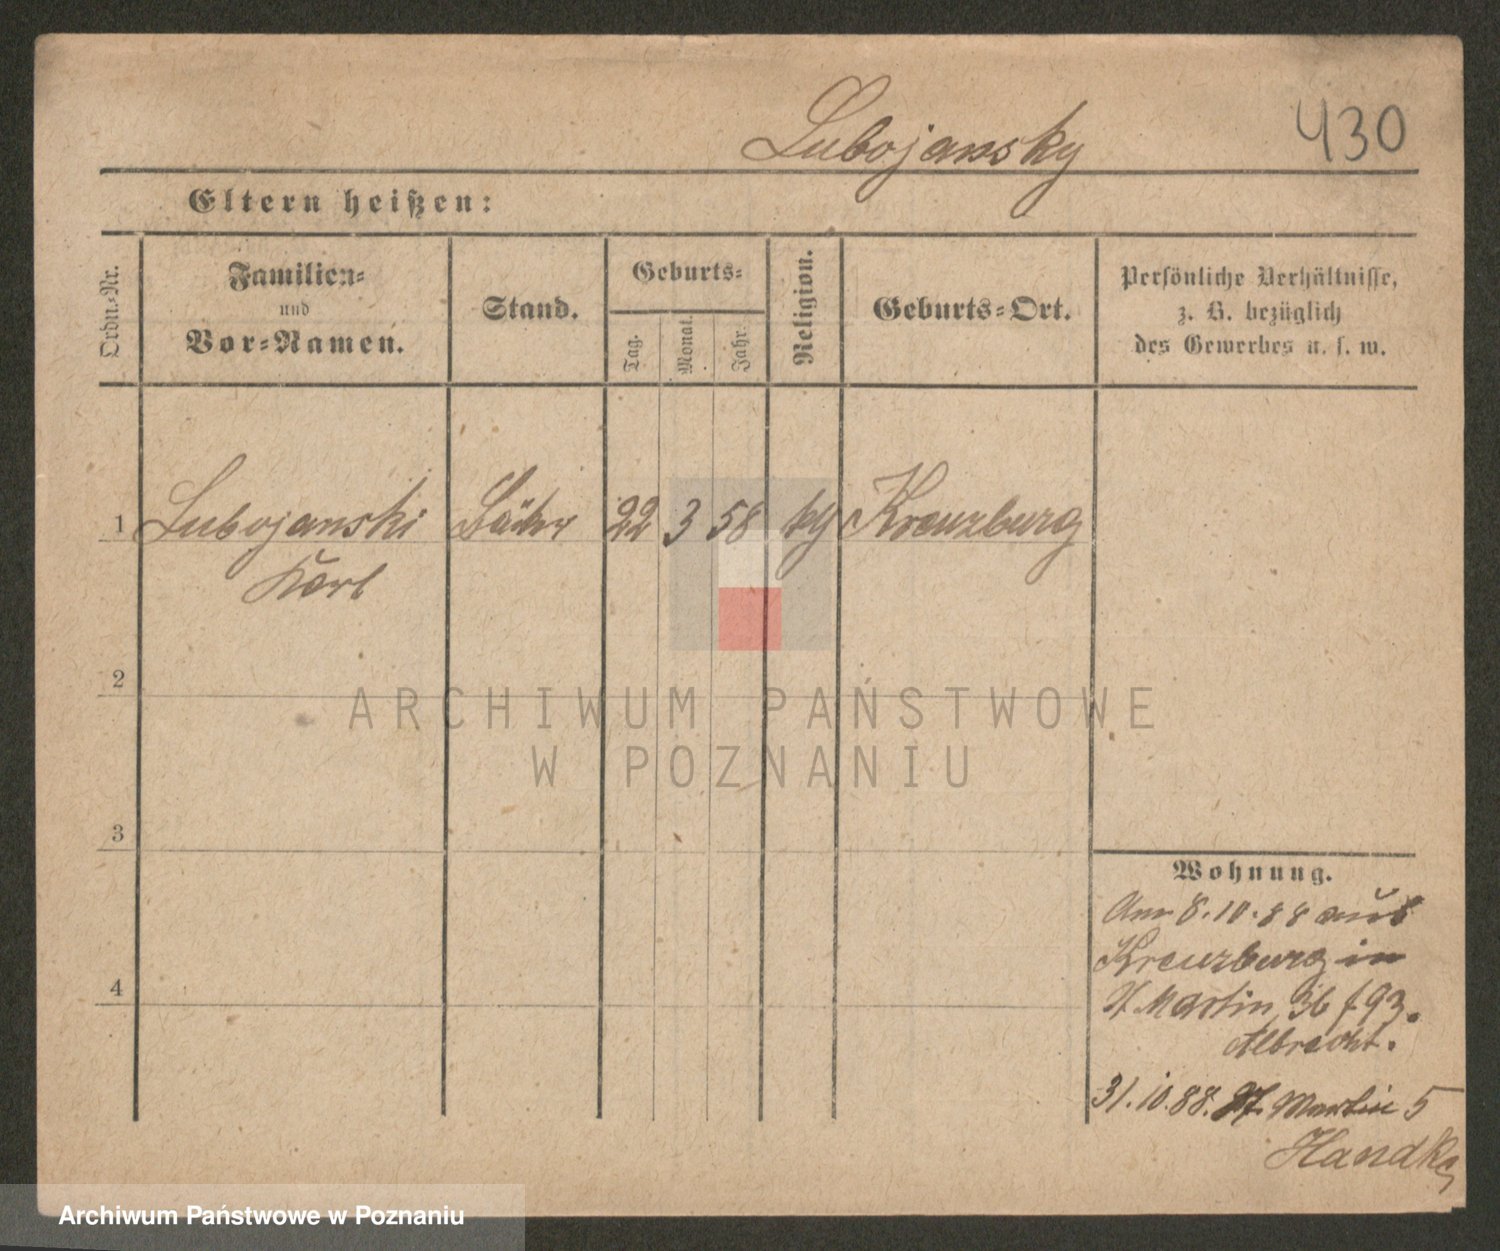 Lubojansky
430
Eltern heißen:
Ordn.-Nr.
Familien-
und
Vor-Namen.
Stand.
Geburts-
Tag.
Monat.
Jahr.
Religion.
Geburts-Ort.
Persönliche Verhältnisse,
z. B. bezüglich
des Gewerbes u. s. w.
1 Lubojanski 22 3 58 Kreuzburg
Karl
2
ARCHIWUM PAŃSTWOWE
W POZNANIU
3
4
Wohnung.
8.10.88 aus
Kreuzburg in
St Martin 36
Albrecht.
31.10.88. St. Martin 5
Handke
Archiwum Państwowe w Poznaniu